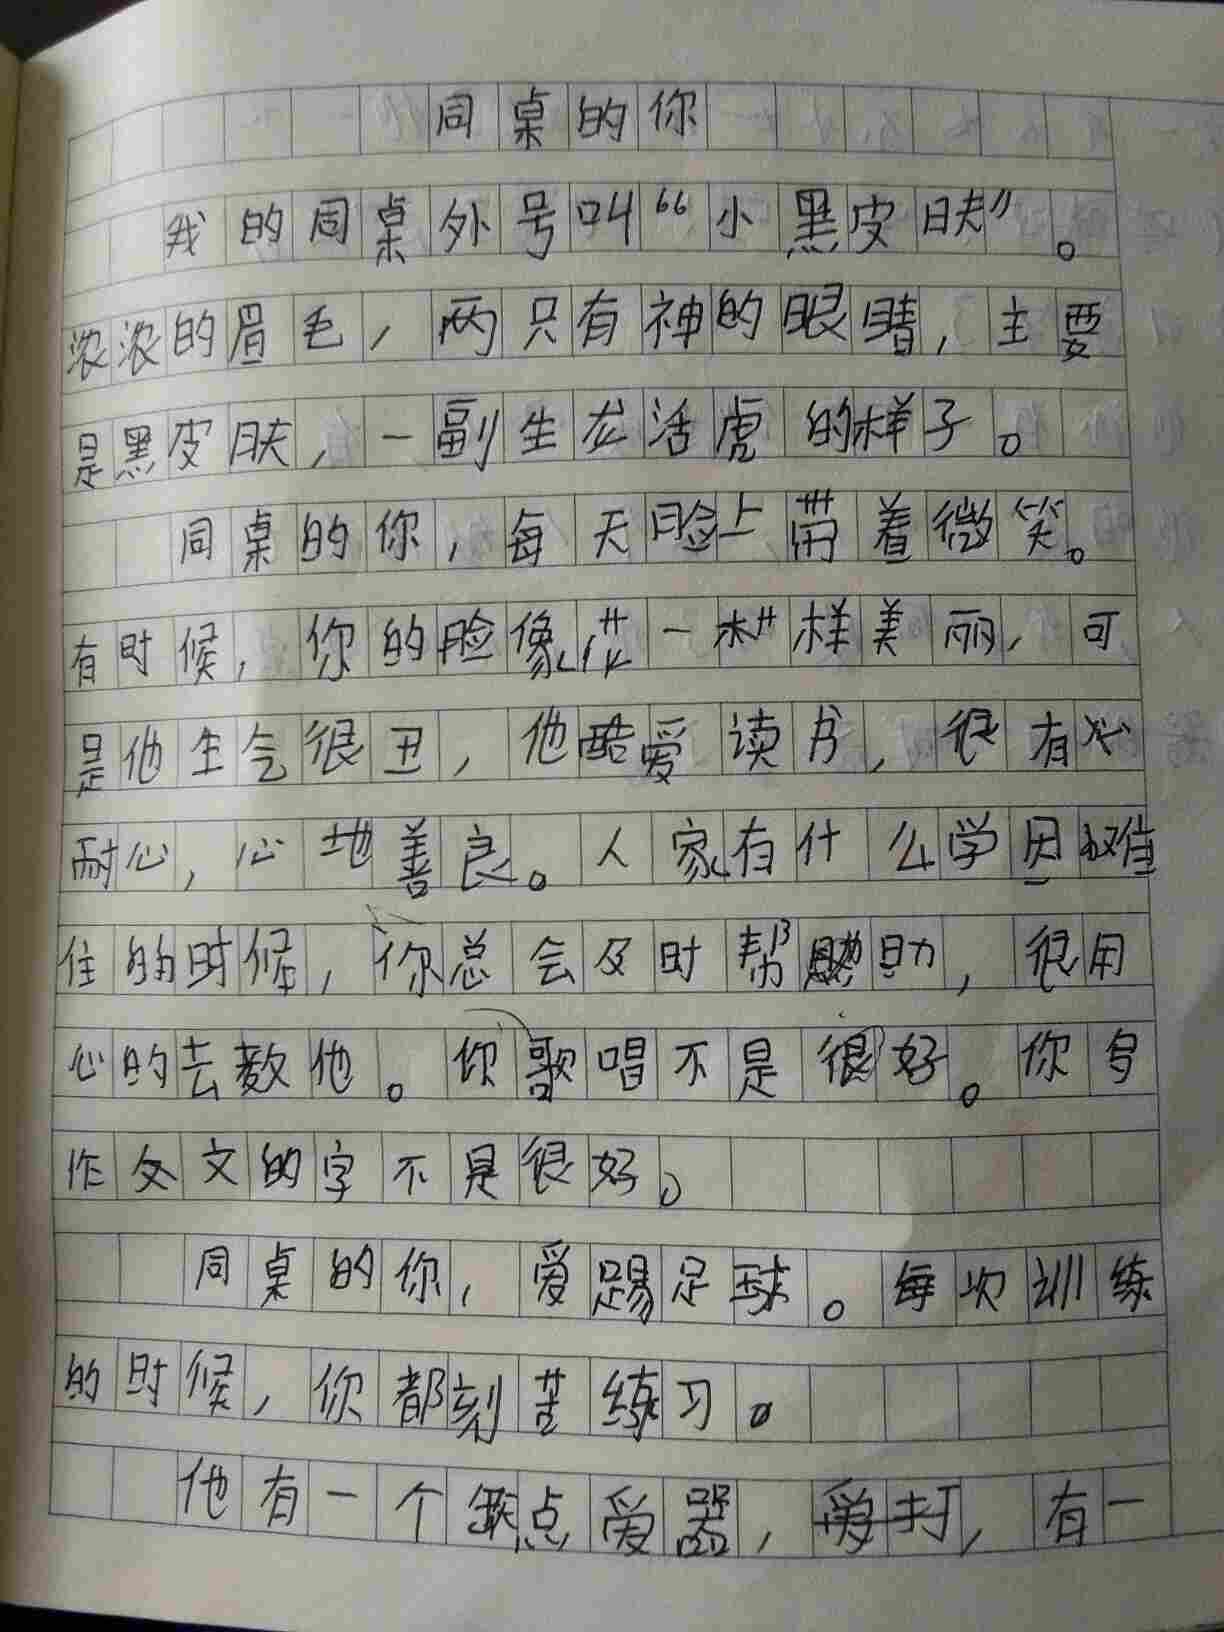 同桌的你
我的同桌外号叫“小黑皮肤”。
浓浓的眉毛,两只有神的眼睛,主要
是黑皮肤,一副生龙活虎的样子。
同桌的你,每天脸上带着微笑。
有时候,你的脸像花一样美丽,可
是他生气很丑,他酷爱读书,很有
耐心,心地善良。人家有什么学困难
住的时候,你总会及时帮助,很用
心的去教他。你歌唱不是很好。你
作文的字不是很好。
同桌的你,爱踢足球。每次训练
的时候,你都刻苦练习。
他有一个缺点爱哭,爱打,有一